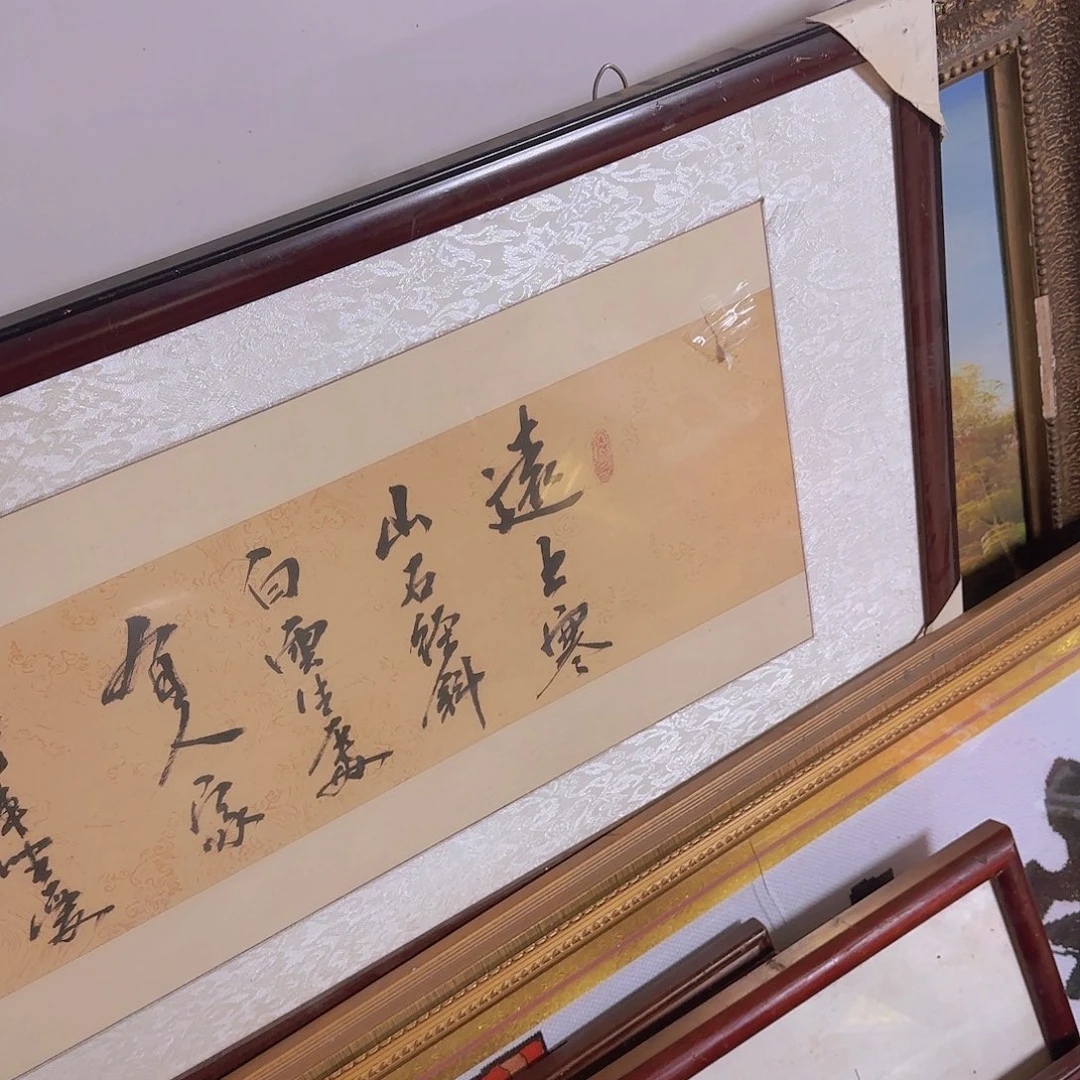 遠上寒
山石徑斜
白雲生處
有人家
車坐愛